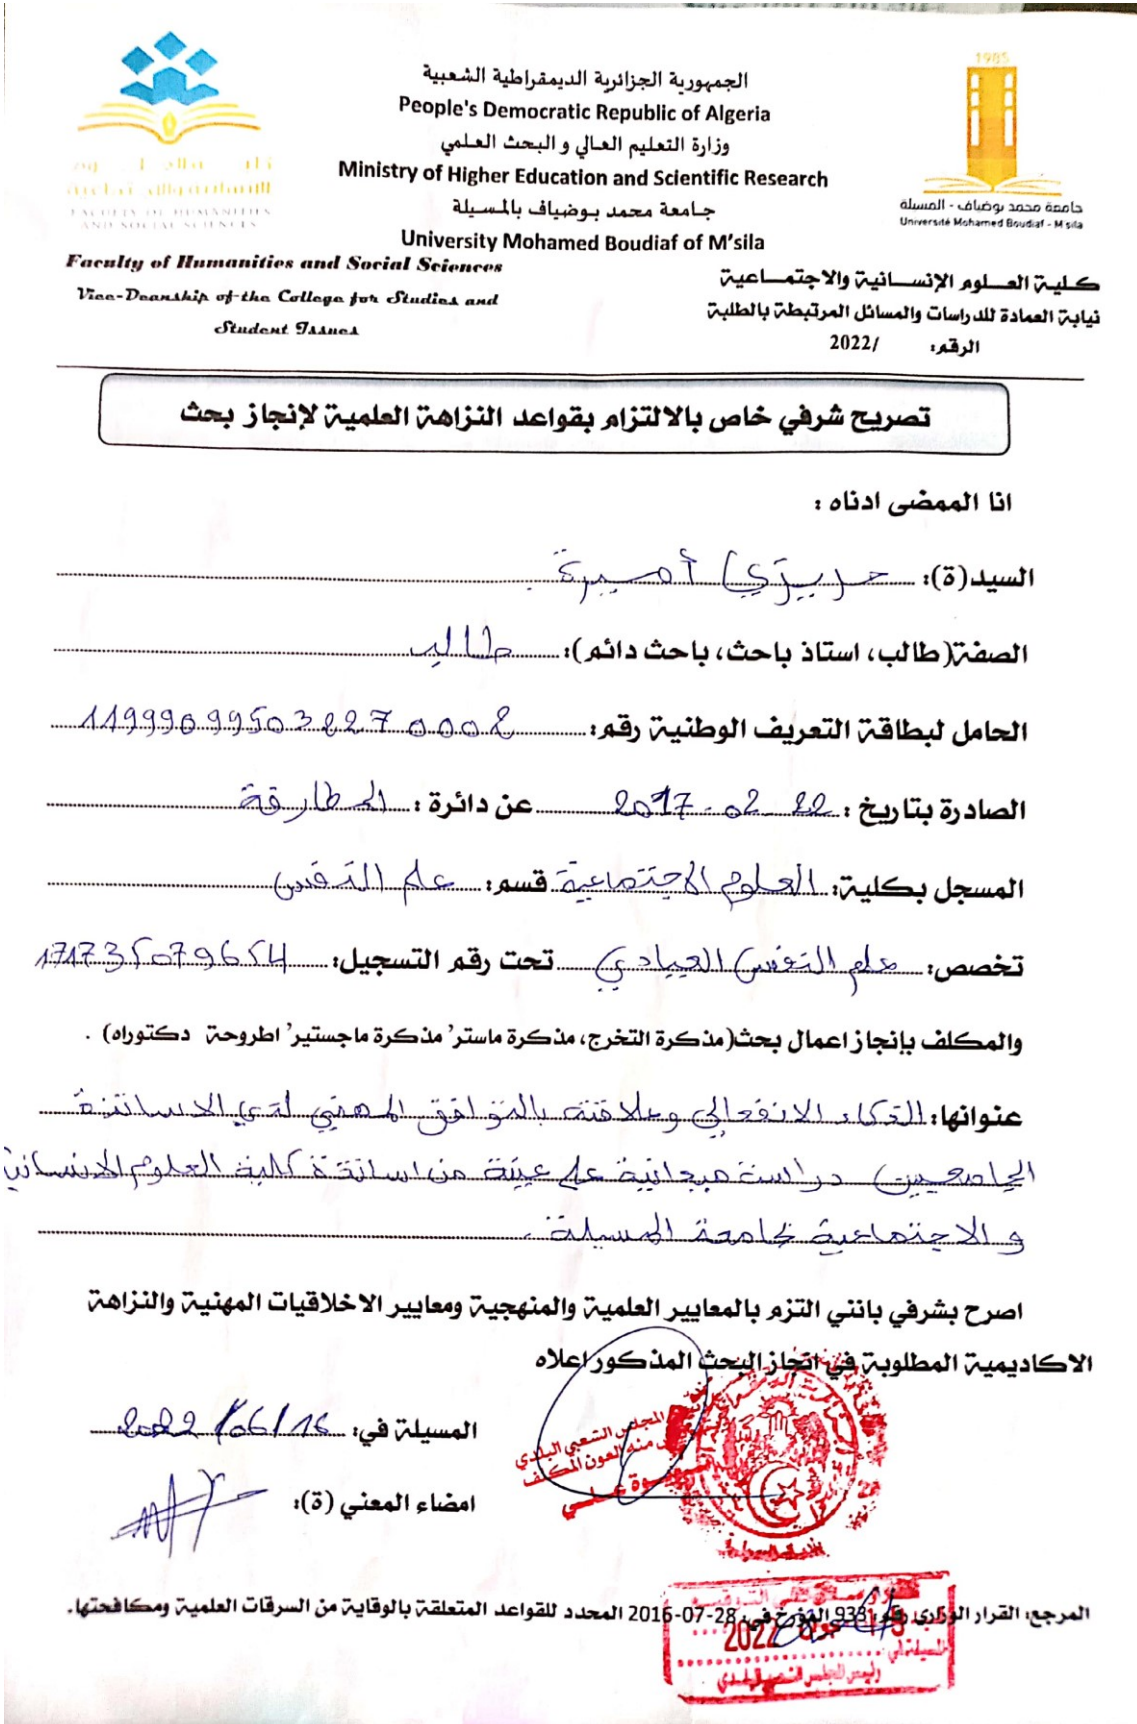 الجمهورية الجزائرية الديمقراطية الشعبية
People's Democratic Republic of Algeria
وزارة التعليم العالي و البحث العلمي
Ministry of Higher Education and Scientific Research
جامعة محمد بوضياف بالمسيلة
University Mohamed Boudiaf of M'sila
FACULTY OF HUMANITIES
AND SOCIAL SCIENCES
1985
جامعة محمد بوضياف - المسيلة
Université Mohamed Boudiaf - M'sila
Faculty of Humanities and Social Sciences
Vice-Deanship of the College for Studies and
Student Issues
كلية العلوم الإنسانية والاجتماعية
نيابة العمادة للدراسات والمسائل المرتبطة بالطلبة
الرقم: /2022
تصريح شرفي خاص بالالتزام بقواعد النزاهة العلمية لإنجاز بحث
انا الممضى ادناه :
السيد(ة): حريزي أميرة
الصفة(طالب، استاذ باحث، باحث دائم): طالب
الحامل لبطاقة التعريف الوطنية رقم:
الصادرة بتاريخ : 2017-02-22 عن دائرة : المطارفة
المسجل بكلية: العلوم الاجتماعية قسم: علم النفس
تخصص: علم النفس العيادي تحت رقم التسجيل:
والمكلف بإنجاز اعمال بحث(مذكرة التخرج، مذكرة ماستر' مذكرة ماجستير' اطروحة دكتوراه) .
عنوانها: الذكاء الانفعالي وعلاقته بالتوافق المهني لدى الاساتذة
الجامعيين دراسة ميدانية على عينة من اساتذة كلية العلوم الانسانية
و الاجتماعية بجامعة المسيلة.
اصرح بشرفي بانني التزم بالمعايير العلمية والمنهجية ومعايير الاخلاقيات المهنية والنزاهة
الاكاديمية المطلوبة في انجاز البحث المذكور اعلاه
المسيلة في: 2022/06/16
المجلس الشعبي البلدي
منه العون المكلف
امضاء المعني (ة):
المرجع: القرار الوزاري رقم 933 المؤرخ في: 28-07-2016 المحدد للقواعد المتعلقة بالوقاية من السرقات العلمية ومكافحتها.
2022
رئيس المجلس الشعبي البلدي